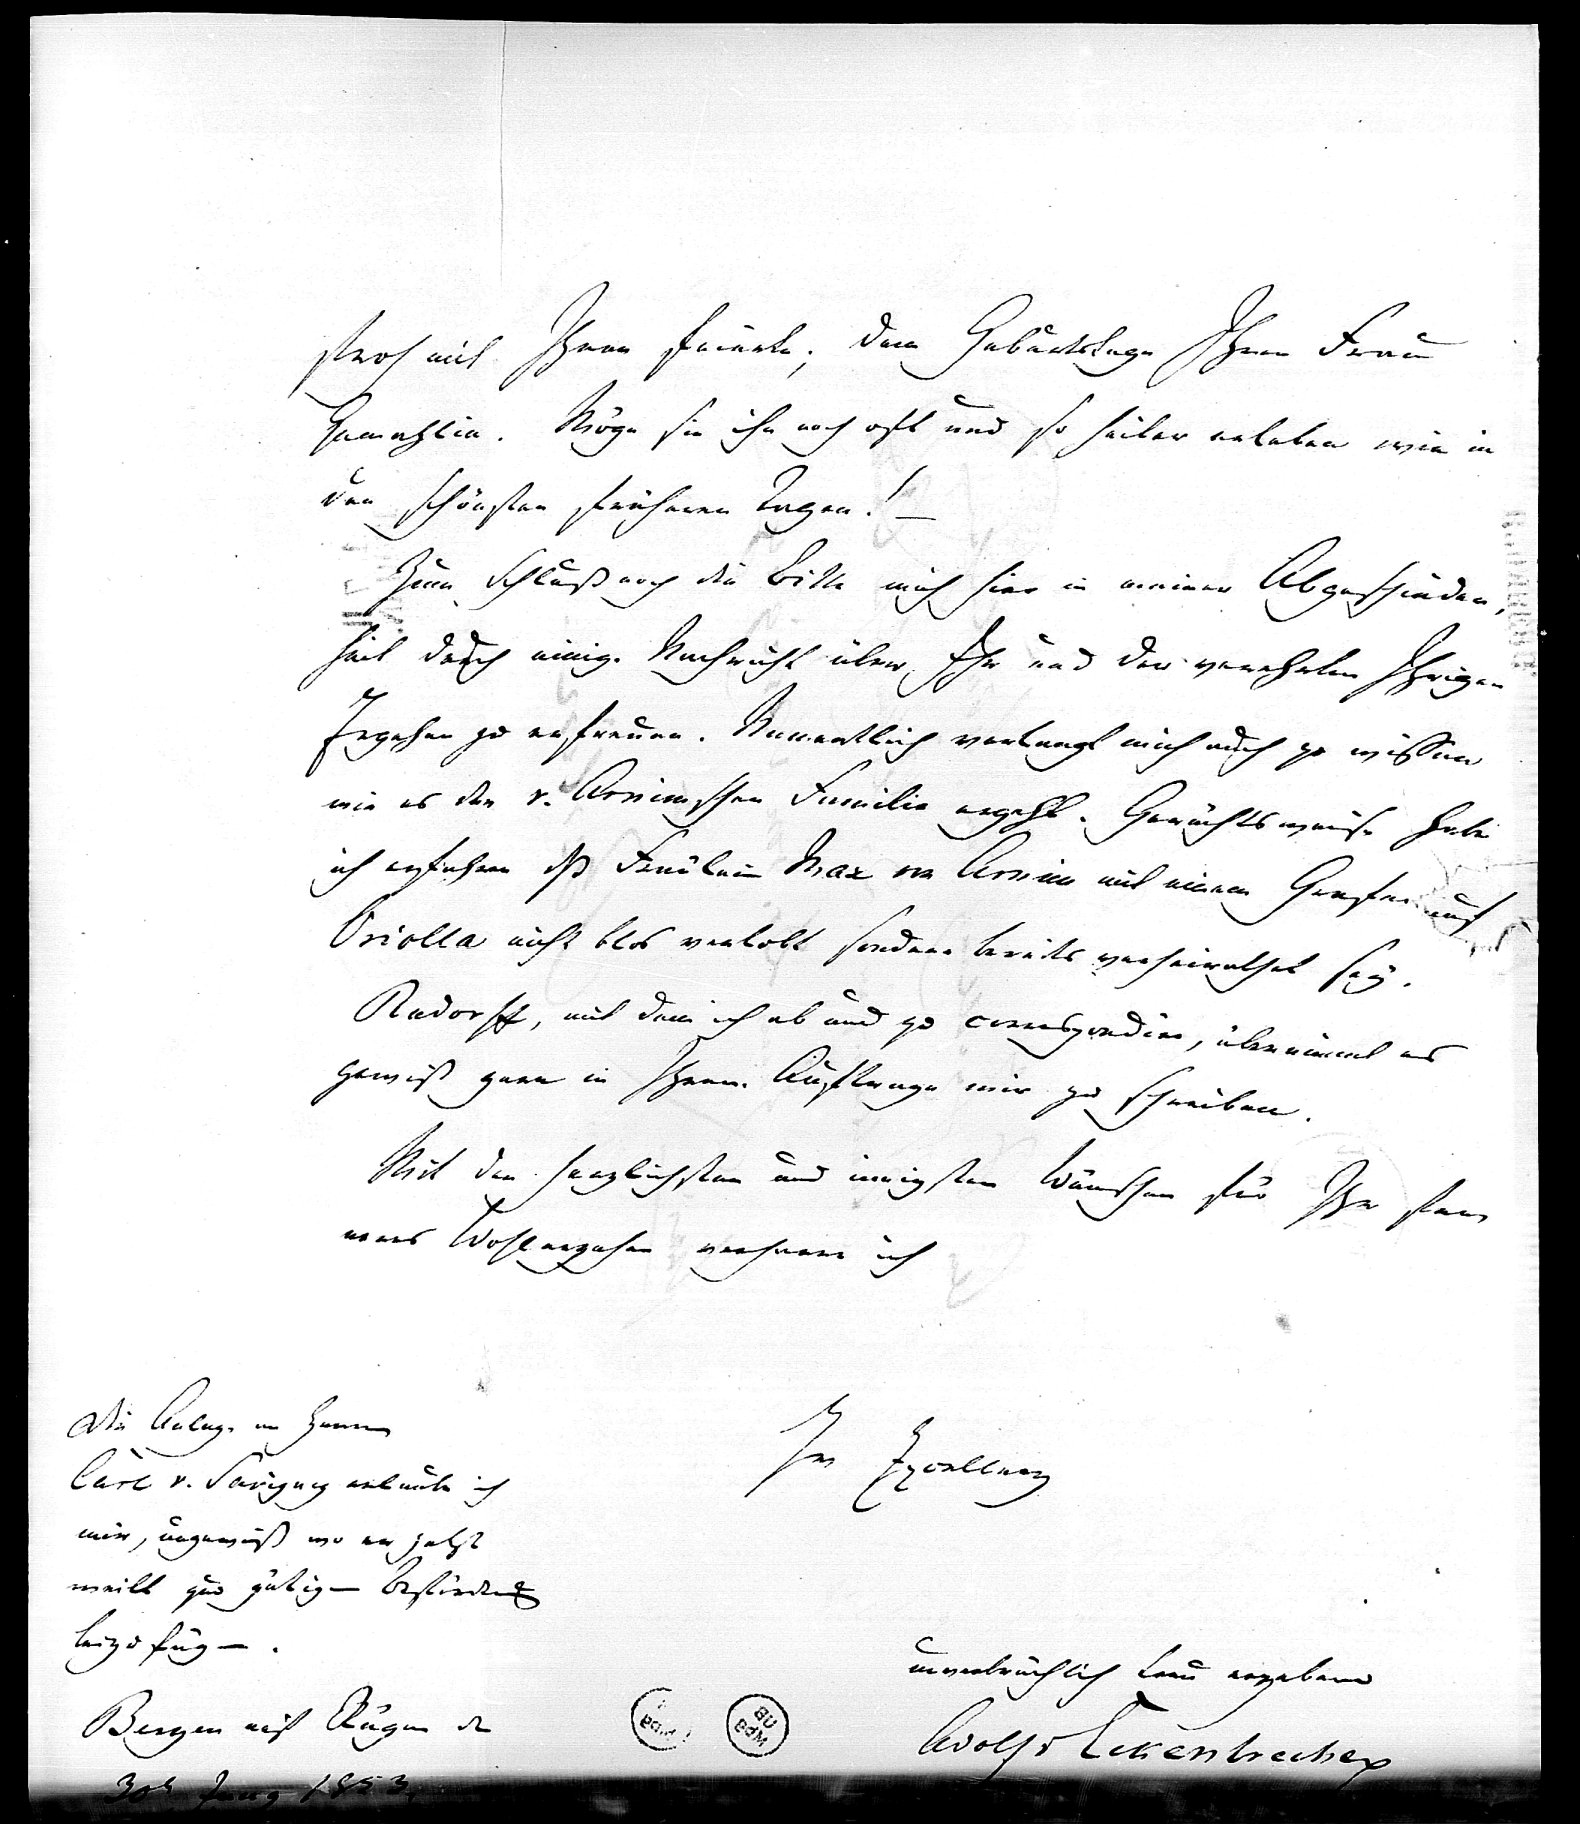 froh mit Ihnen feierte; dem Geburtstage Ihrer Frau
Gemahlin. Möge sie ihn noch oft und so heiter erleben wie in
den schönsten früheren Tagen! —
Zum Schluß noch die Bitte mich hier in meiner Abgeschieden,
heit durch einige Nachricht über Ihr und der verehrten Ihrigen
Ergehen zu erfreuen. Namentlich verlangt mich auch zu wissen
wie es der v. Arnimschen Familie ergeht. Gerüchtsweise habe
ich erfahren dß Fräulein Max von Arnim mit einem Grafen
Oriolla nicht blos verlobt sondern bereits verheirathet sey.
Rudorff, mit dem ich ab und zu correspondire, übernimmt es
gewiß gern in Ihrem Auftrage mir zu schreiben.
Mit den herzlichsten und innigsten Wünschen für Ihr fer,
neres Wohlergehen verharre ich
Die Anlage an Herrn
Carl v. Savigny erlaube ich
mir, ungewiß wo er jetzt
weilt zur gütigen Beförderung
beizufügen.
Bergen auf Rügen den
30t Juny 1853.
Ew Excellenz
unverbrüchlich treu ergebener
Adolf v Eckenbrecher
UB
Mbg